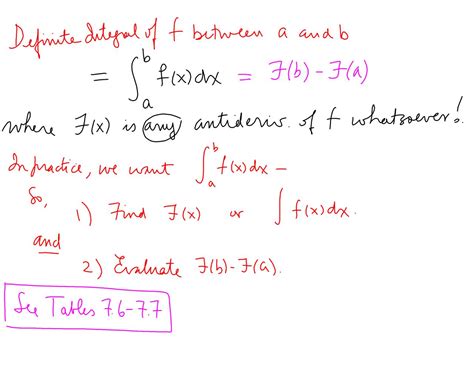 Definite Integral of f between a and b
= ∫_a^b f(x)dx = F(b) - F(a)
where F(x) is any antideriv. of f whatsoever!
In practice, we want ∫_a^b f(x)dx –
So,
1) Find F(x) or ∫ f(x)dx.
and
2) Evaluate F(b)-F(a).
See Tables 7.6-7.7